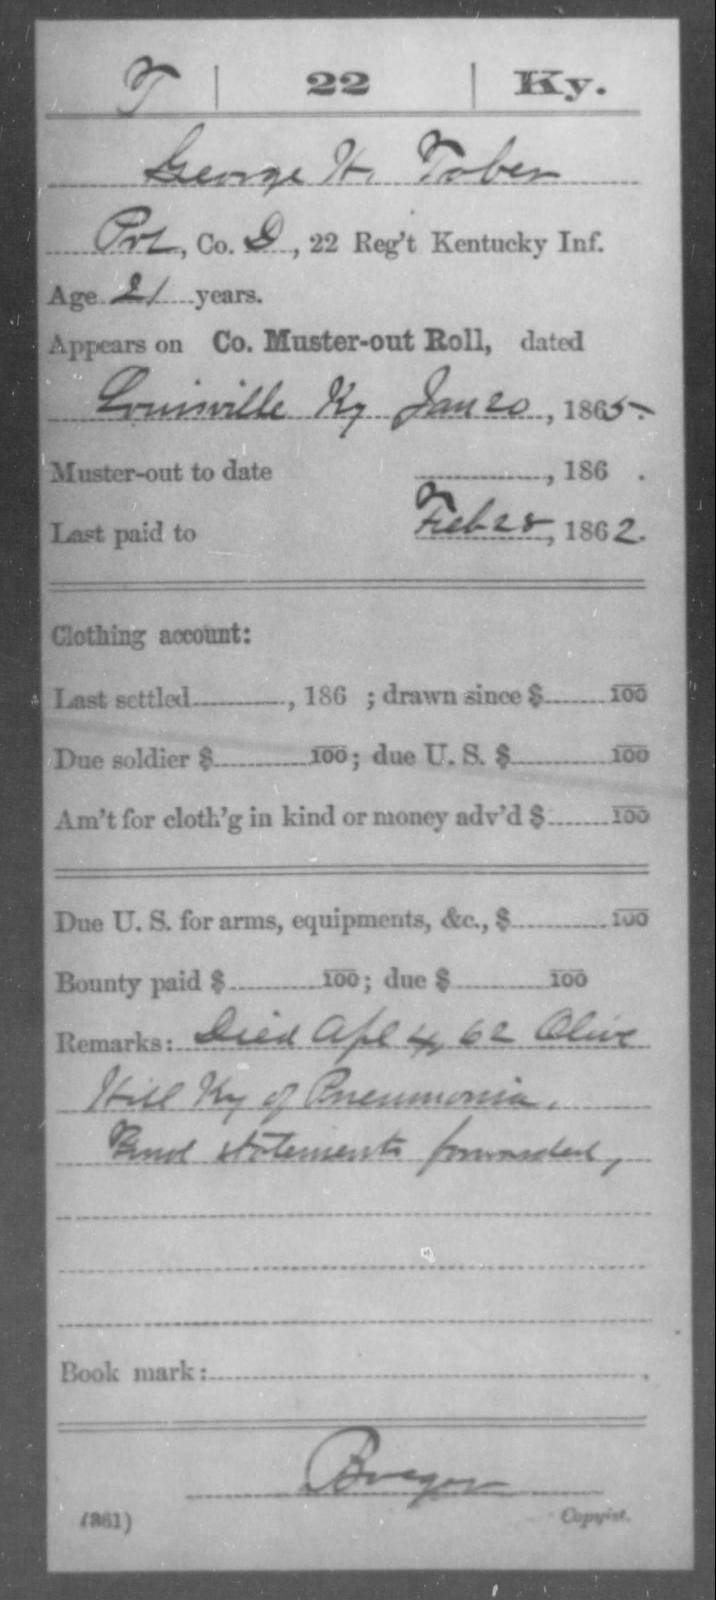 T | 22 | Ky.
George H. Tober
Pvt, Co. D, 22 Reg't Kentucky Inf.
Age 21 years.
Appears on Co. Muster-out Roll, dated
Louisville Ky Jan 20, 1865.
Muster-out to date , 186 .
Last paid to Feb 28, 1862.
Clothing account:
Last settled , 186 ; drawn since $ 100
Due soldier $ 100; due U. S. $ 100
Am't for cloth'g in kind or money adv'd $ 100
Due U. S. for arms, equipments, &c., $ 100
Bounty paid $ 100; due $ 100
Remarks: Died Apl 4, 62 Olive
Hill Ky of Pneumonia.
Final statements forwarded,
Book mark: .
(861) Copyist.